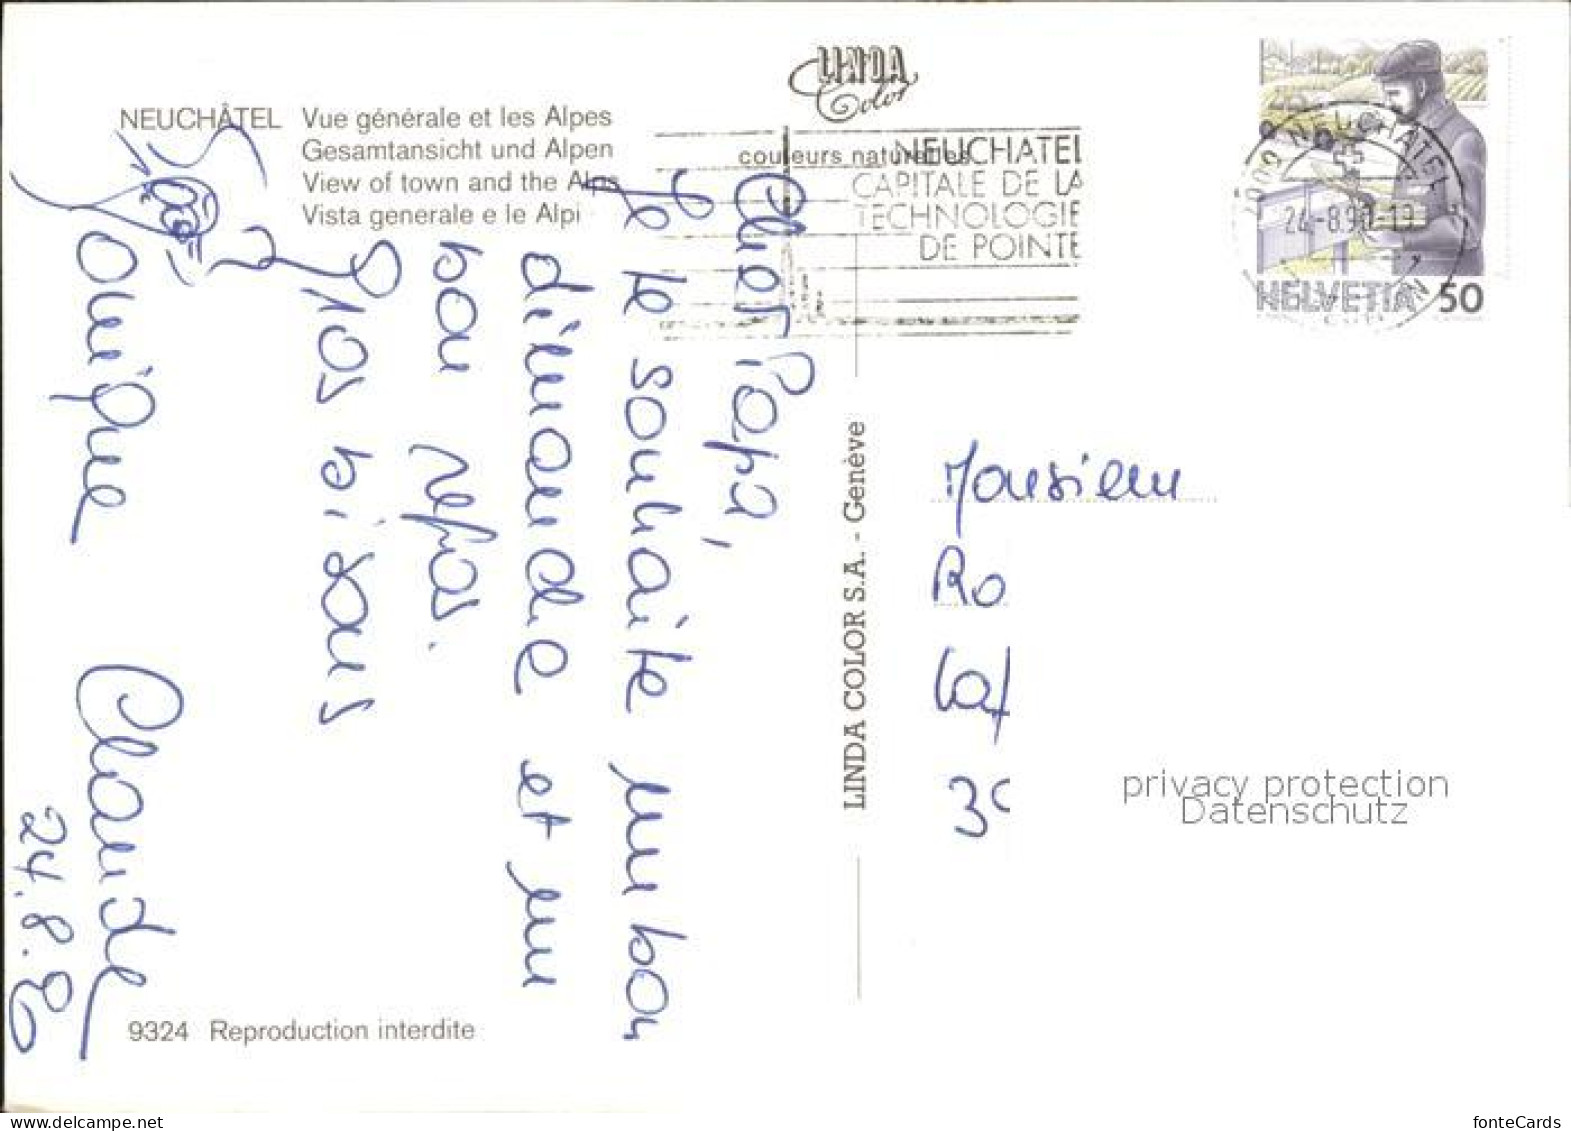 NEUCHÂTEL Vue générale et les Alpes
Gesamtansicht und Alpen
View of town and the Alps
Vista generale e le Alpi
LINDA
Color
couleurs naturelles
NEUCHATEL
CAPITALE DE LA
TECHNOLOGIE
DE POINTE
2000 NEUCHATEL
24.-8.90-19
HELVETIA 50
Cher Papa,
Je te souhaite un bon
dimanche et un
bon repos.
Gros bisous
Claude
24.8.90
LINDA COLOR S.A. - Genève
Monsieur
Ro
9324 Reproduction interdite
privacy protection
Datenschutz
fonteCards